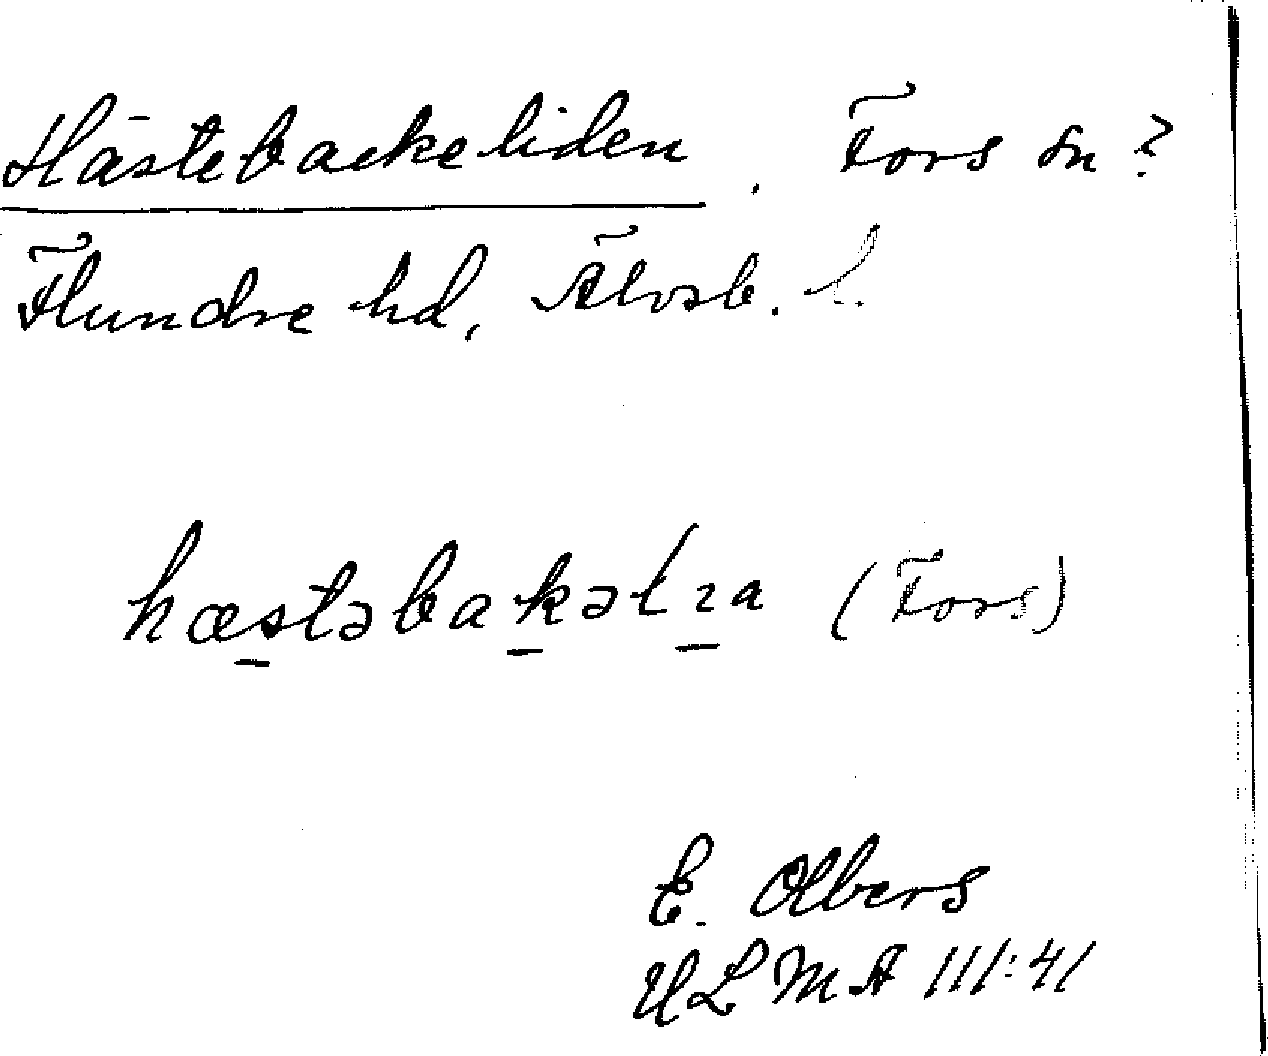 Hästebackeliden, Fors sn?
Flundre hd, Älvsb. l.
hæstəbakəlıa (Fors)
E. Olbers
ULMA 111:41